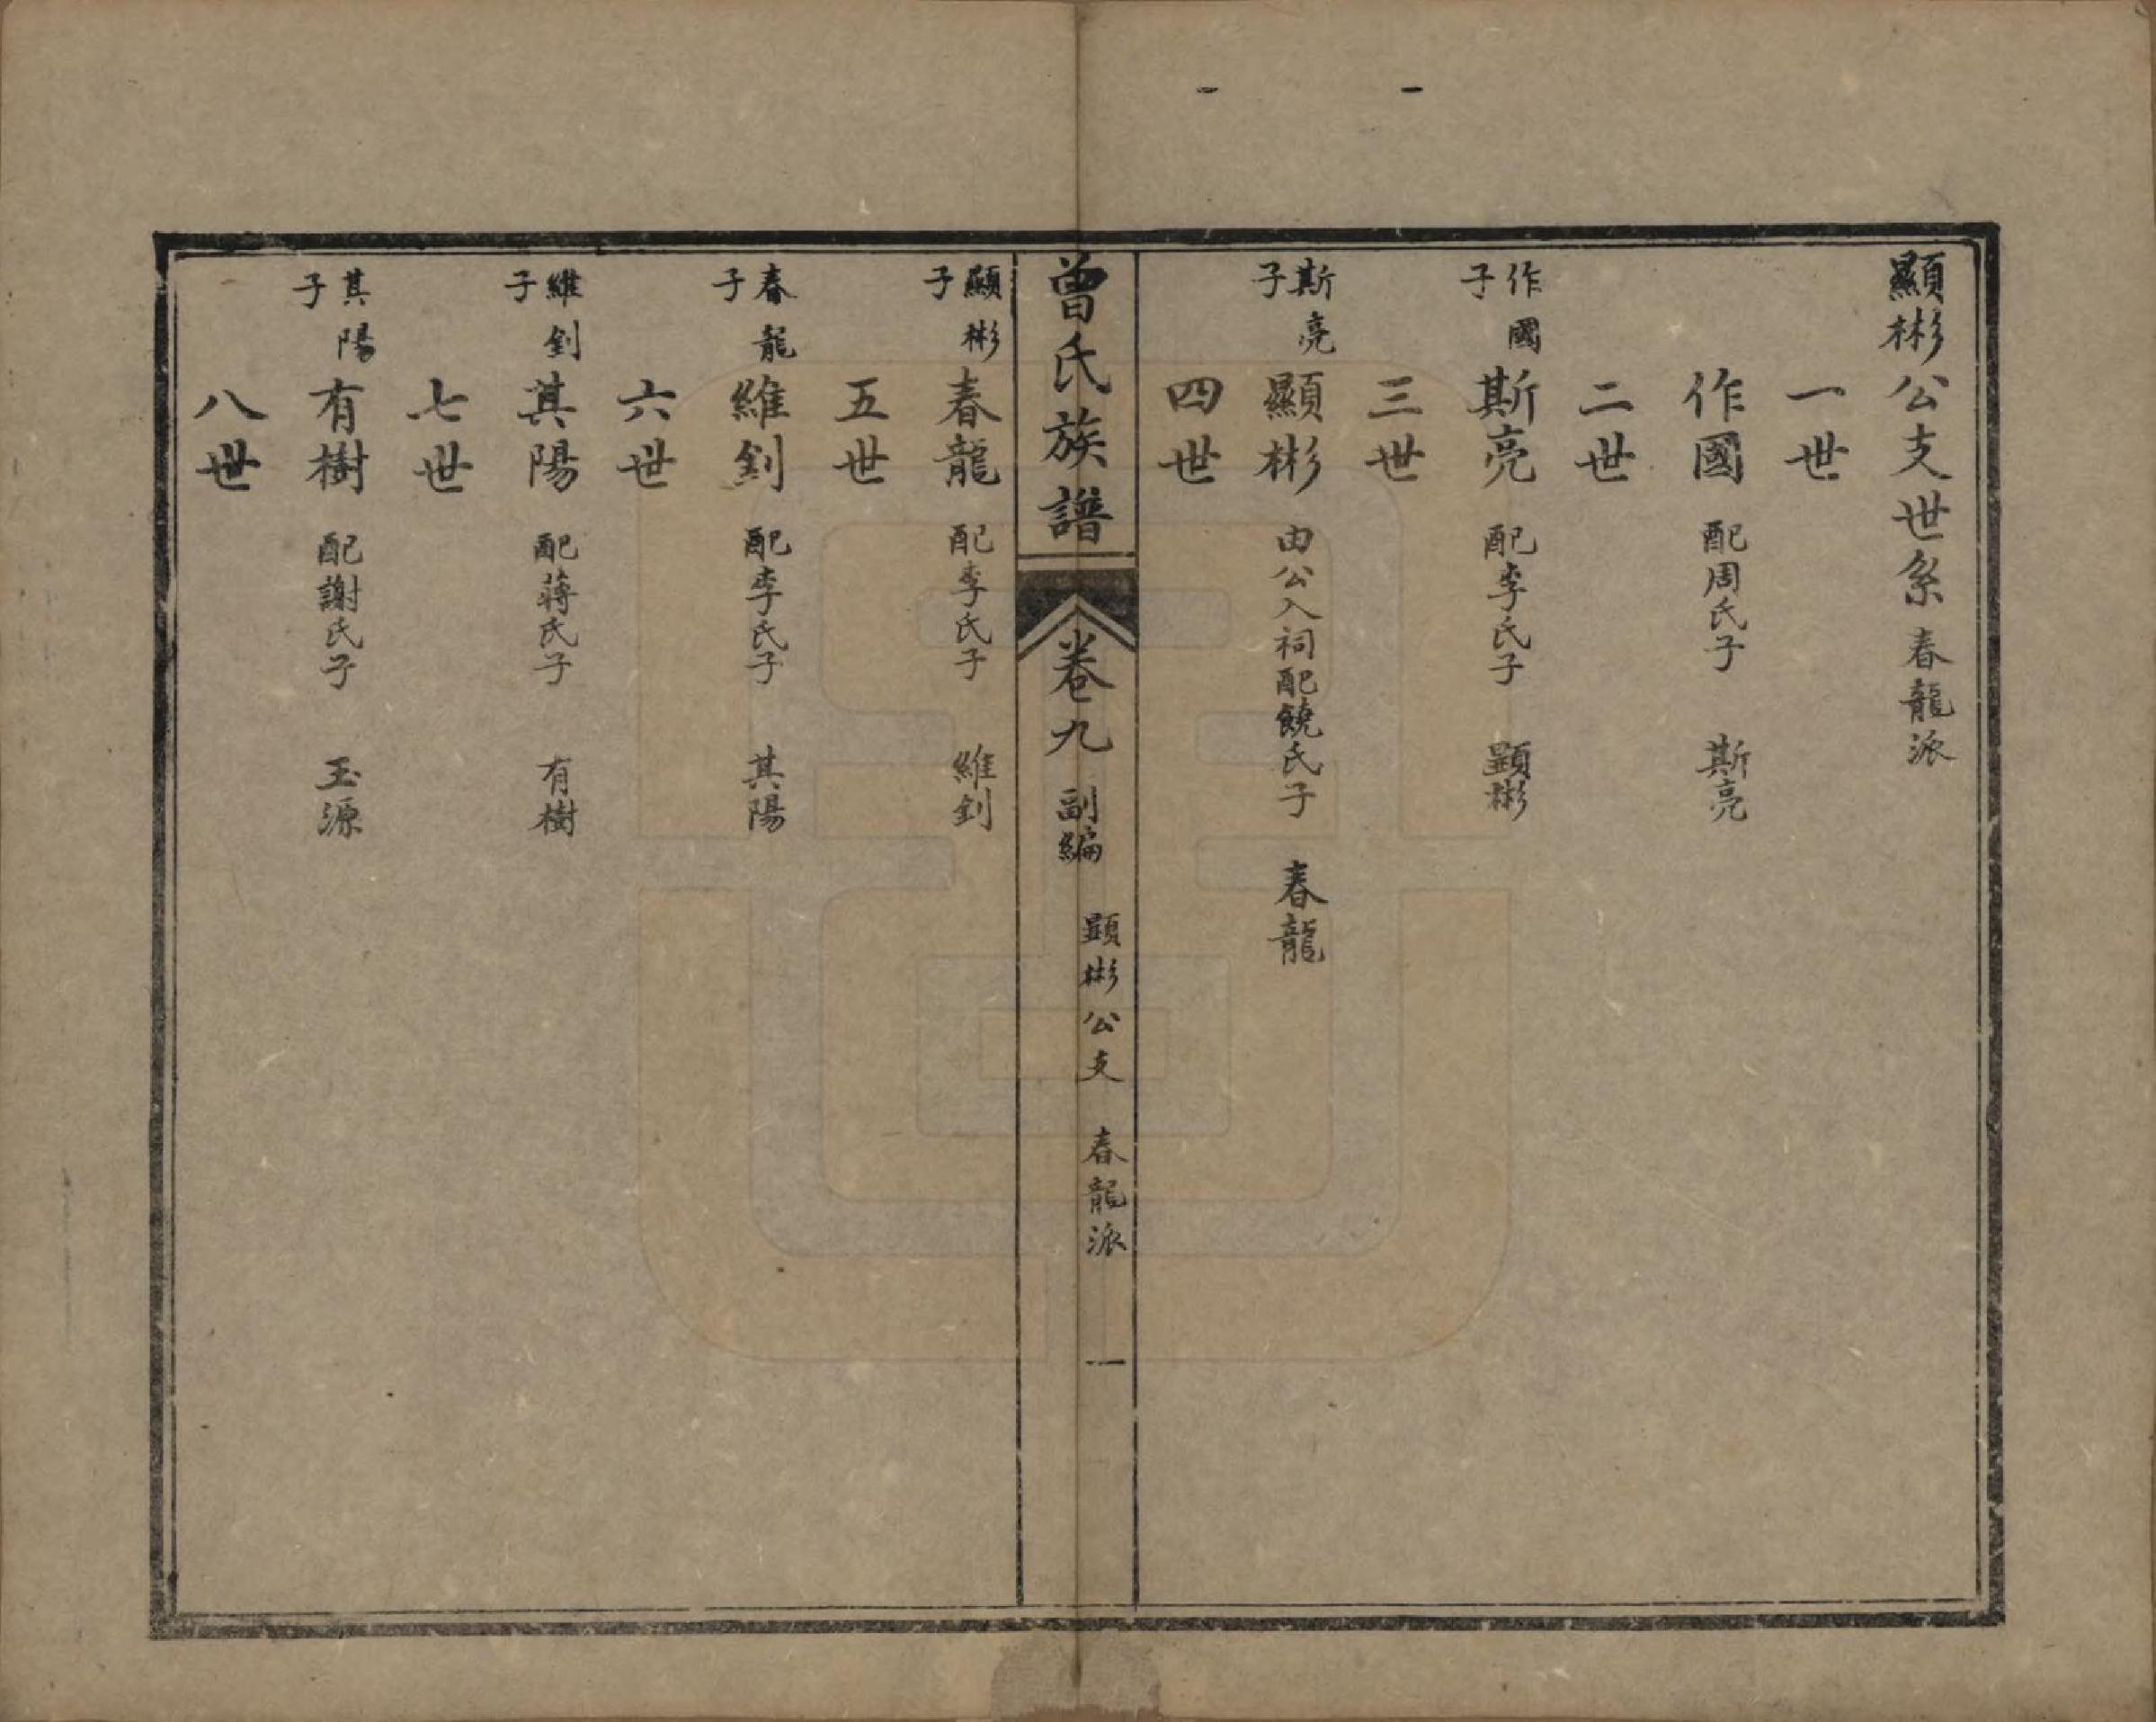 顯彬公支世系 春龍派
一世
作國 配周氏子 斯亮
二世
作國子 斯亮 配李氏子 顕彬
三世
斯亮子 顯彬 由公入祠配饒氏子 春龍
四世
曾氏族譜 卷九 副編 顕彬公支 春龍派 一
顯彬子 春龍 配李氏子 維釗
五世
春龍子 維釗 配李氏子 其陽
六世
維釗子 其陽 配蔣氏子 有樹
七世
其陽子 有樹 配謝氏子 玉源
八世